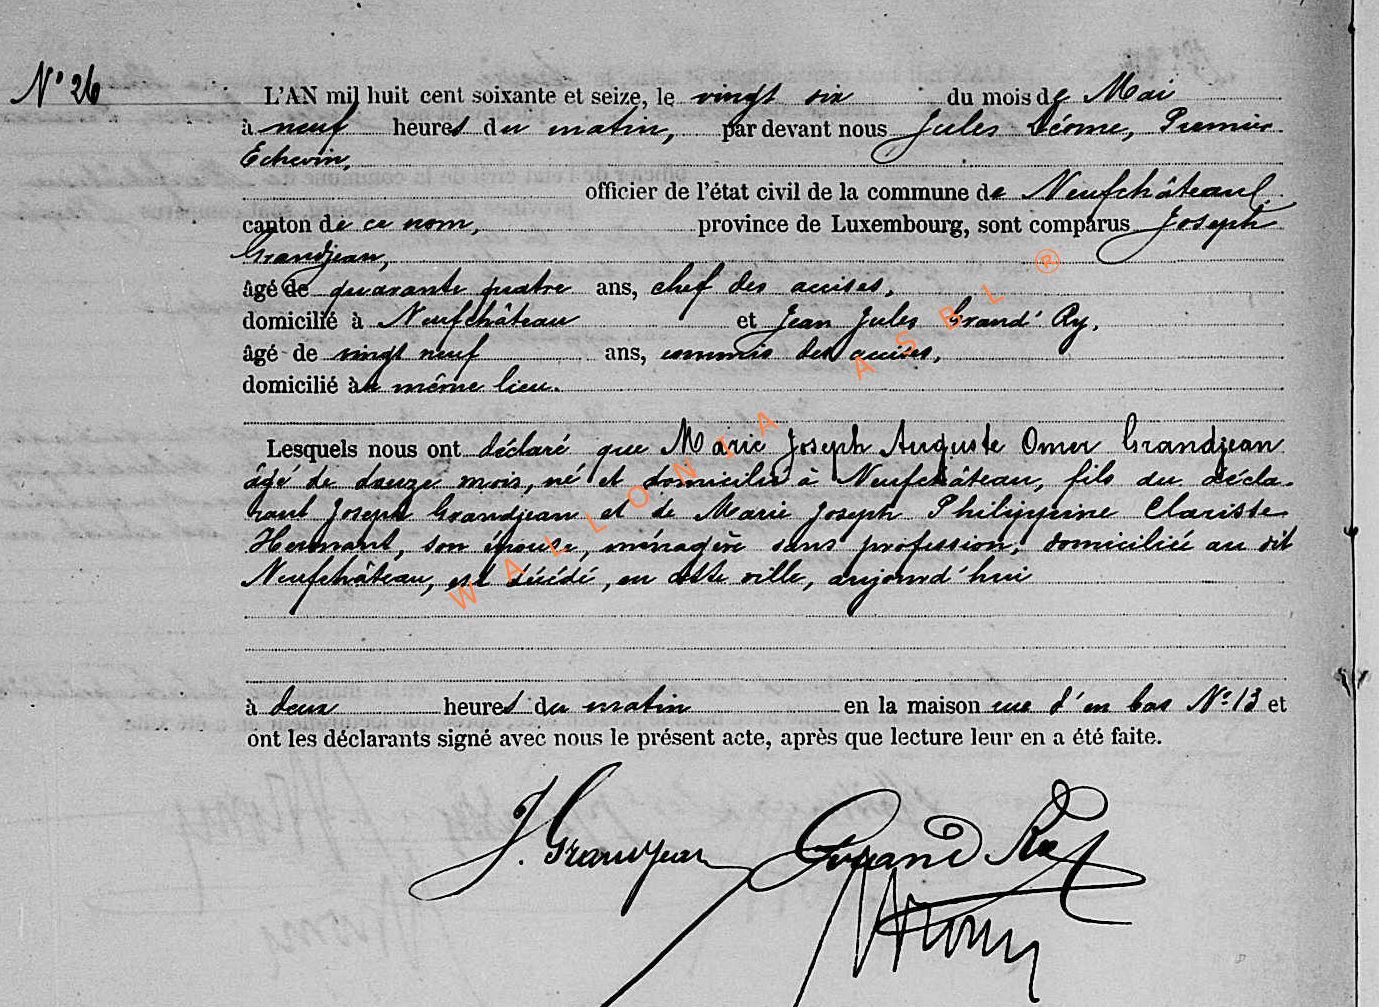 N° 26
L'AN mil huit cent soixante et seize, le vingt six du mois de Mai
à neuf heures du matin, par devant nous Jules Déome, Premier
Echevin,
officier de l'état civil de la commune de Neufchâteau,
canton de ce nom, province de Luxembourg, sont comparus Joseph
Grandjean,
âgé de quarante quatre ans, chef des accises,
domicilié à Neufchâteau et Jean Jules Grand' Ry,
âgé de vingt neuf ans, commis des accises,
domicilié au même lieu.
Lesquels nous ont déclaré que Marie Joseph Auguste Omer Grandjean
âgé de douze mois, né et domicilié à Neufchâteau, fils du décla-
rant Joseph Grandjean et de Marie Joseph Philippine Clariste
Hermant, son épouse, ménagère sans profession, domiciliée au dit
Neufchâteau, est décédé, en cette ville, aujourd'hui
à deux heures du matin en la maison rue d'en bas N° 13 et
ont les déclarants signé avec nous le présent acte, après que lecture leur en a été faite.
J. Grandjean Grand Ry
WALLONIA ASBL ®